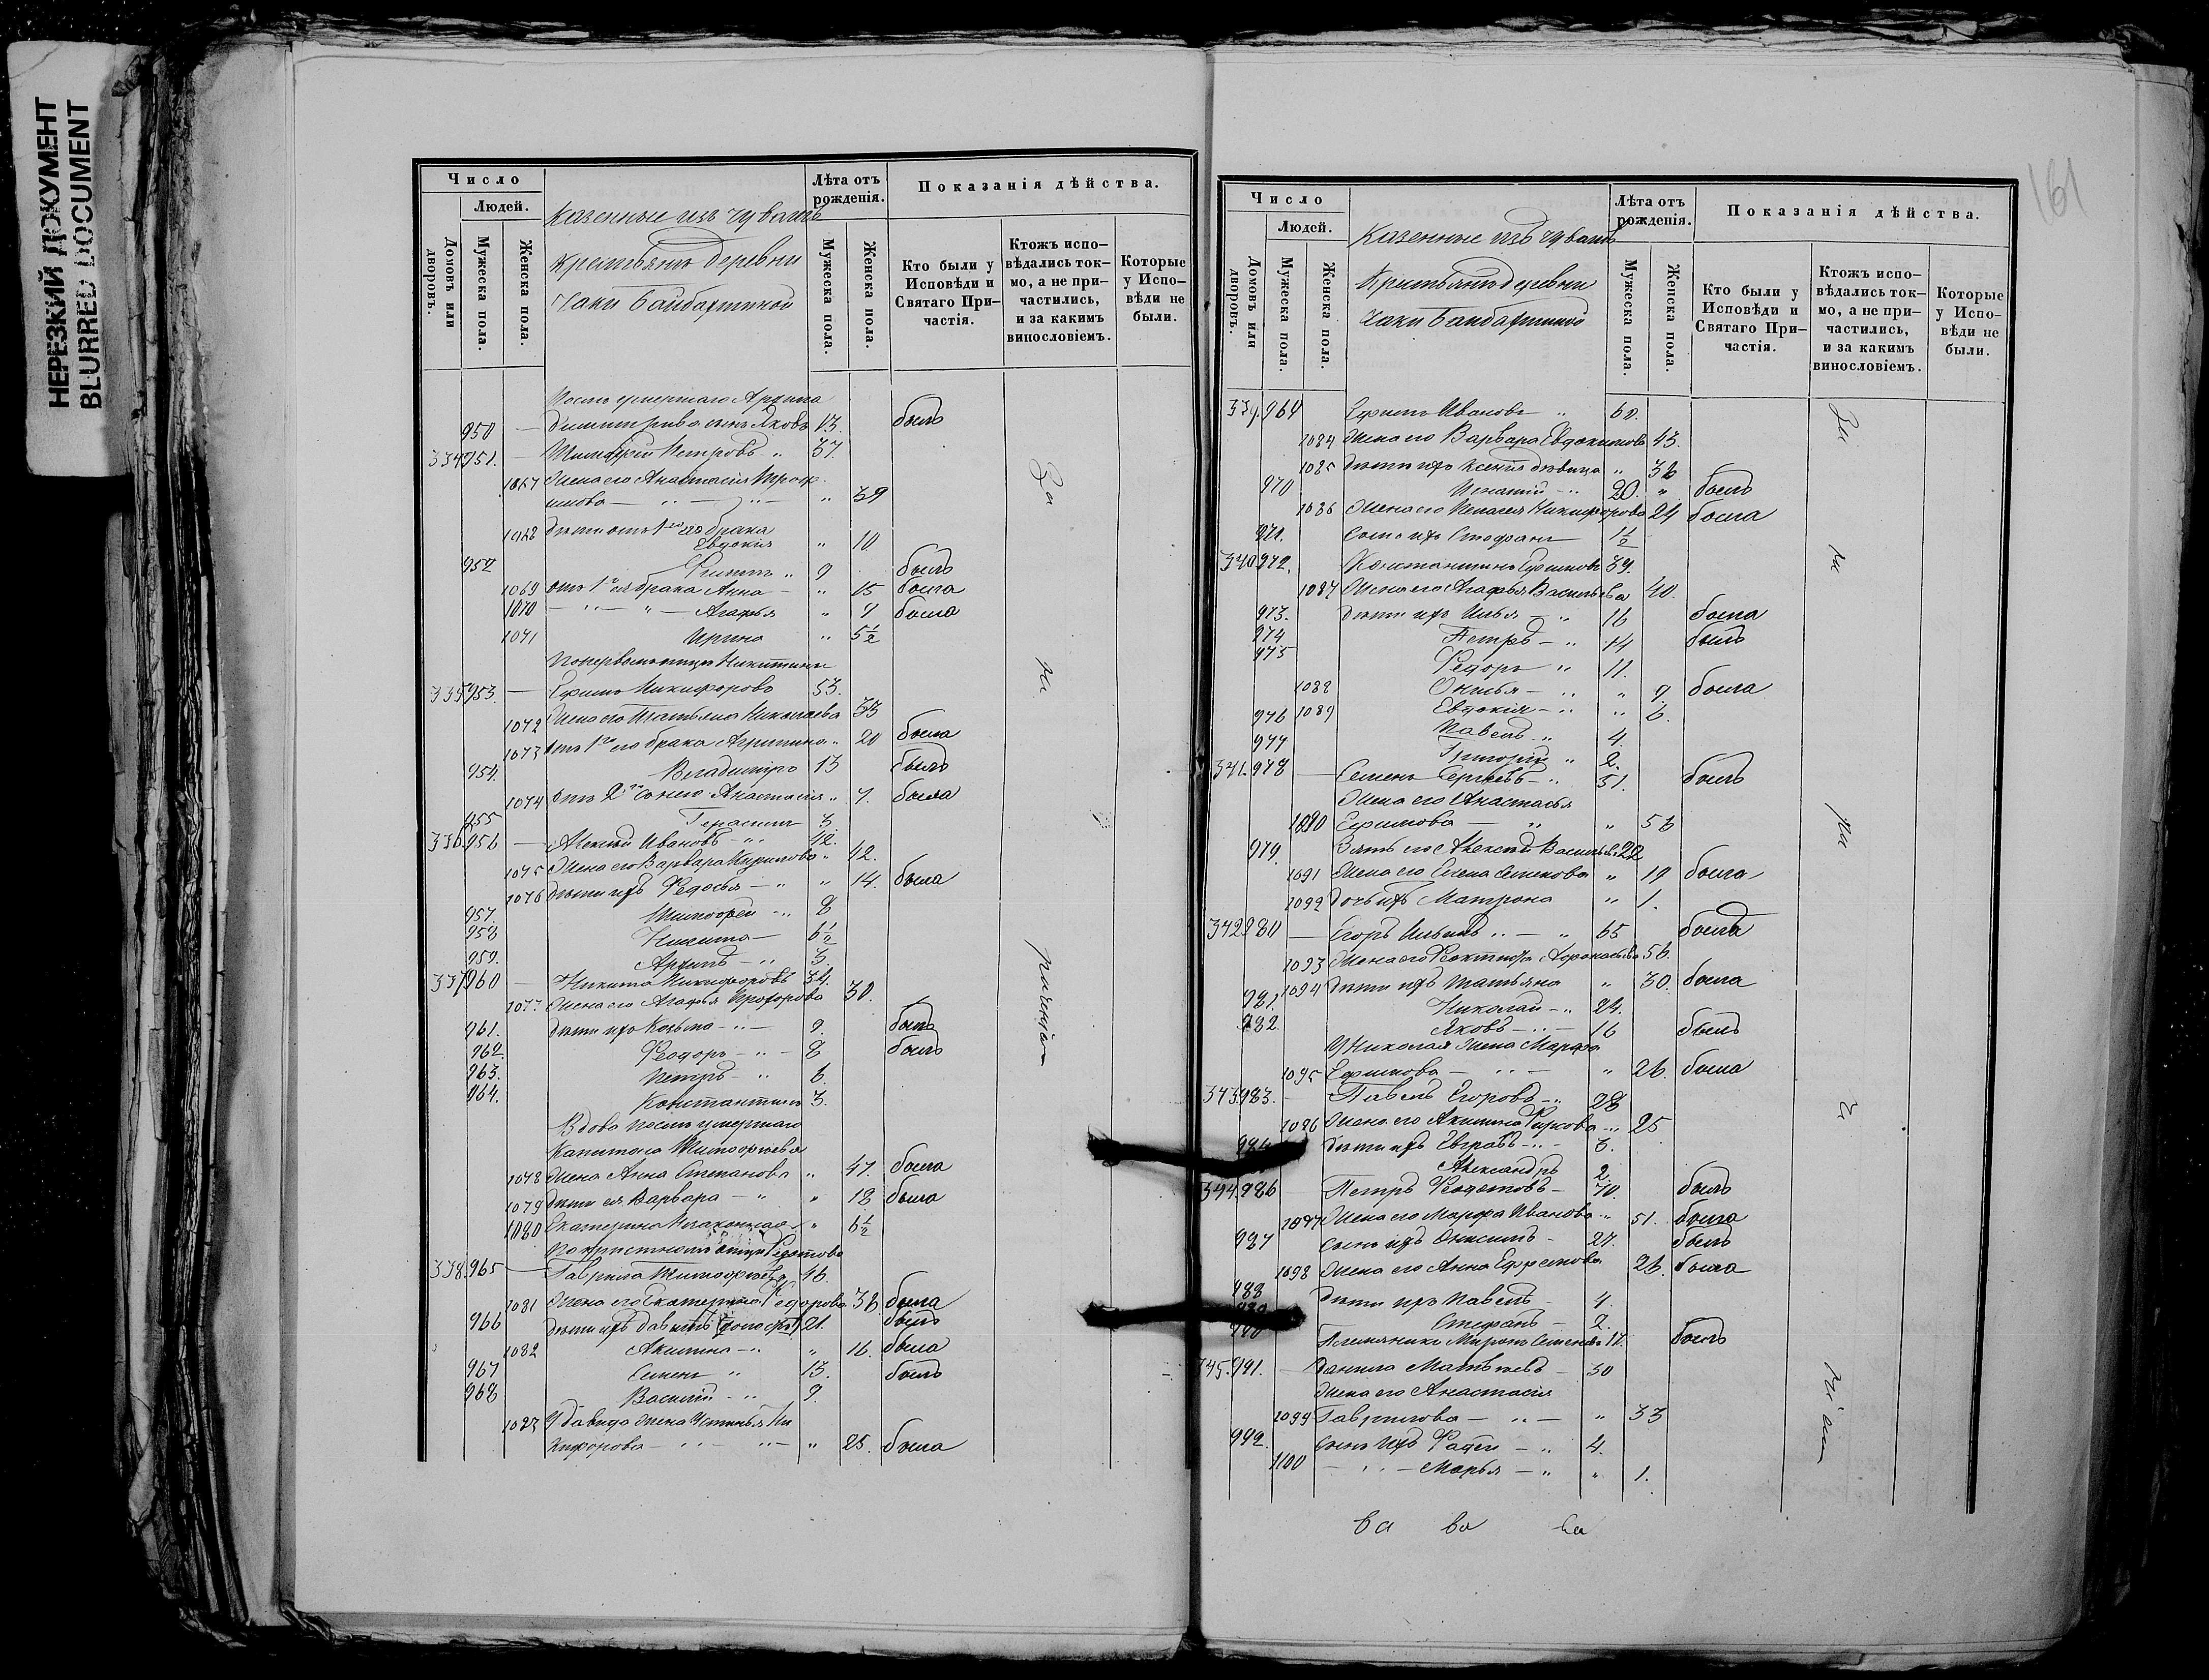 НЕРЕЗКИЙ ДОКУМЕНТ
BLURRED DOCUMENT
Число
Людей.
Домовъ или дворовъ.
Мужеска пола.
Женска пола.
Казенные изъ чувашъ
крестьянъ деревни
Чаки Байбахтиной
Лѣта отъ рожденія.
Мужеска пола.
Женска пола.
Показанія дѣйства.
Кто были у Исповѣди и Святаго Причастія.
Ктожъ исповѣдались токмо, а не причастились, и за какимъ винословіемъ.
Которые у Исповѣди не были.
После умершаго Архипа
950 — Димитріева сынъ Яковъ 13. былъ
334 951. — Петровъ „ 37.
1067 Жена его Анастасія
— „ — „ — „ 39
1068 Дѣти отъ 1го его брака
Евдокія „ 10
952 Филиппъ „ 9 былъ
1069 отъ 1го ея брака Анна — „ 15 была
1070 — „ — „ — Агафья „ 7 была
1071 Ирина „ 5½
335 953. — Ефимъ Никифоровъ 53.
1072 Жена его Татьяна Николаева 33
1073 отъ 1го его брака Агрипина „ 20 была
954. Владимиръ 13 былъ
1074 отъ 2й Анастасія „ 7. была
955 Герасимъ 3
336 956 — Алексѣй Ивановъ — „ 42.
1075 Жена его Варвара Кирилова „ 42.
1076 Дѣти ихъ Федосья — „ „ 14. была
957. Тимофей — „ 8
958 Никита — 6½
959. Архипъ — „ 3.
337 960 — Никита Никифоровъ 34.
1077 Жена его Агафья Прохорова 30.
961. Дѣти ихъ Козьма — „ — 9. былъ
962. Феодоръ — „ — 8 былъ
963. Петръ — „ 6.
964. Константинъ 3.
Вдова после умершаго
Капитона Тимофѣева
1078 Жена Анна Степанова „ 47. была
1079 Дѣти ея Варвара — „ „ 18 была
1080 Екатерина Незаконная „ 6½
По крестному отцу Федотова
338. 965 — Гаврила Тимофѣевъ 46.
1081 Жена его Екатерина Федорова 38. была
966 Дѣти ихъ Давыдъ 21. былъ
1082 Акилина — „ „ 16. была
967 Семенъ „ 13. былъ
968 Василій — „ 9.
1083 У Давыда жена Устинья Ни
кифорова — „ — „ — „ 25. была
За
не
раченіем
161
Число
Людей.
Домовъ или дворовъ.
Мужеска пола.
Женска пола.
Казенные изъ чувашъ
Крестьянъ деревни
Чаки Байбахтиной
Лѣта отъ рожденія.
Мужеска пола.
Женска пола.
Показанія дѣйства.
Кто были у Исповѣди и Святаго Причастія.
Ктожъ исповѣдались токмо, а не причастились, и за какимъ винословіемъ.
Которые у Исповѣди не были.
339. 969 Ефимъ Ивановъ „ 60.
1084 Жена его Варвара Евдокимова 43.
1085 Дѣти ихъ Ксенія дѣвица „ 36
970 Игнатій — „ 20. „ былъ
1086 Жена его Пелагея Никифорова 24 была
971. Сынъ ихъ Стефанъ 1½
340 972. Константинъ Ефимовъ 39.
1087 Жена его Агафья Васильева 40.
973. Дѣти ихъ Илья — „ 16 была
974 Петръ — „ 14 былъ
975 Федоръ „ 11.
1088 Офимья — „ „ 9. была
1089 Евдокія — „ „ 6.
976 Павелъ „ 4.
977 Григорій „ 2.
341. 978 — Семенъ Сергѣевъ — „ 51. былъ
Жена его Анастасья
1090 Ефимова — „ „ 56
979. Зять его Алексѣй Васильевъ 22
1091 Жена его Елена Семенова „ 19 была
1092 Дочь ихъ Матрона „ 1.
342 980 — Егоръ Ильинъ „ — „ 65 была
1093 Жена его Афонасьева 56.
1094 Дѣти ихъ Татьяна „ 30. была
981. Николай — „ 24.
982. Яковъ — „ — 16 былъ
У Николая жена Марфа
1095 Ефимова — „ — „ 26. была
343 983. — Павелъ Егоровъ — „ 28
1096 Жена его Акилина — „ 25
984 Дѣти ихъ Евграфъ — „ — 3.
Александръ 2.
344. 986 — Петръ Федотовъ — 70. былъ
1097 Жена его Марфа Иванова — „ 51. была
987 Сынъ ихъ Онисимъ — 27. былъ
1098 Жена его Анна Ефремова 26. была
988 Дѣти ихъ Павелъ — 4.
989 Стефанъ — 2.
990 Племянникъ Миронъ Семеновъ 17. былъ
345. 991. — Данила Матвѣевъ — 30
Жена его Анастасія
1099 Гаврилова — „ — „ 33
992. Сынъ ихъ Фадей — „ 4.
1100 — „ — Марья — „ „ 1.
За
не
ра
че
ніем